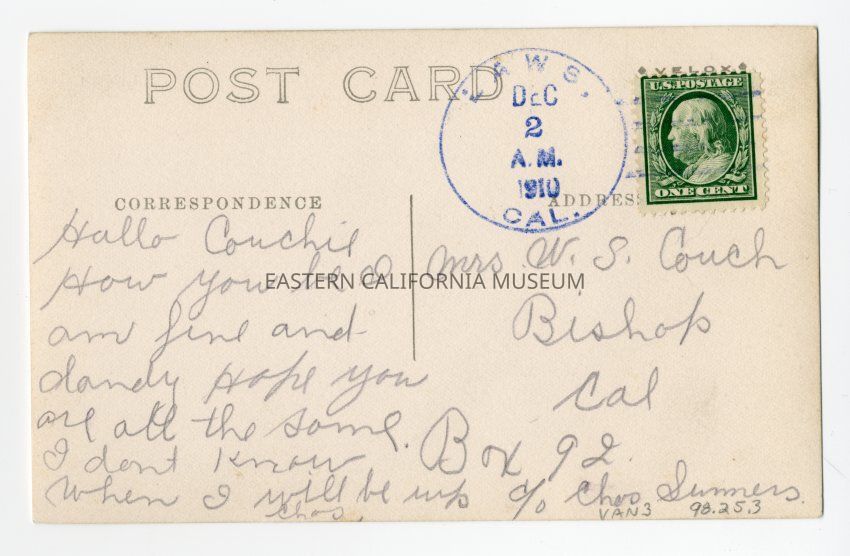 POST CARD
LAWS.
DEC
2
A.M.
1910
CAL.
VELOX
U.S. POSTAGE
ONE CENT
CORRESPONDENCE
ADDRESS
Hallo Couchie
How you be I
am fine and
dandy Hope you
are all the same.
I dont know
When I will be up
Chas.
Mrs W. S. Couch
Bishop
Cal
Box 92
c/o Chas Summers.
VAN3 98.25.3
EASTERN CALIFORNIA MUSEUM